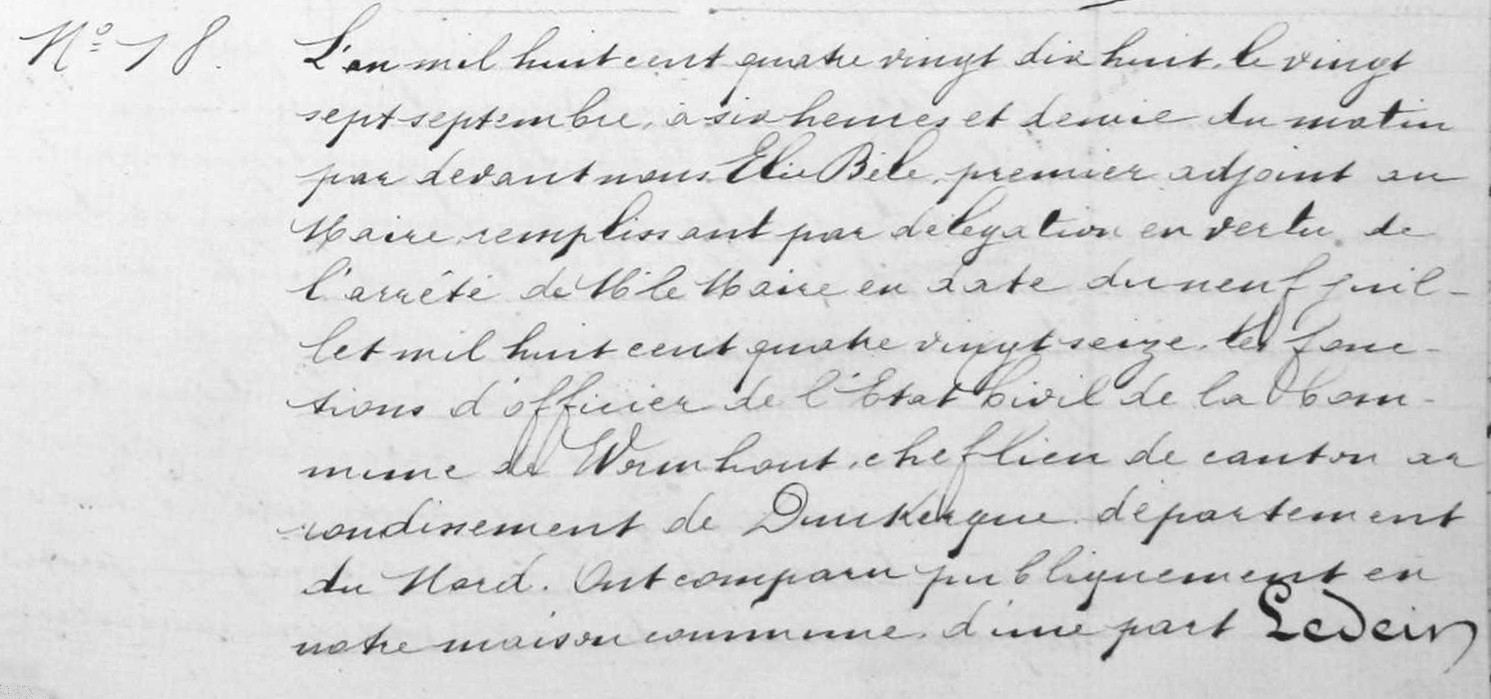 N° 18. L'an mil huit cent quatre vingt dix huit, le vingt
sept septembre, à six heures et demie du matin
par devant nous Elie Bèle, premier adjoint au
Maire remplissant par délégation en vertu de
l'arrêté de M le Maire en date du neuf juil-
let mil huit cent quatre vingt seize, les fonc-
tions d'officier de l'Etat Civil de la Com-
mune de Wormhout, chef lieu de canton ar
rondissement de Dunkerque département
du Nord. Ont comparu publiquement en
notre maison commune, d'une part Ledein